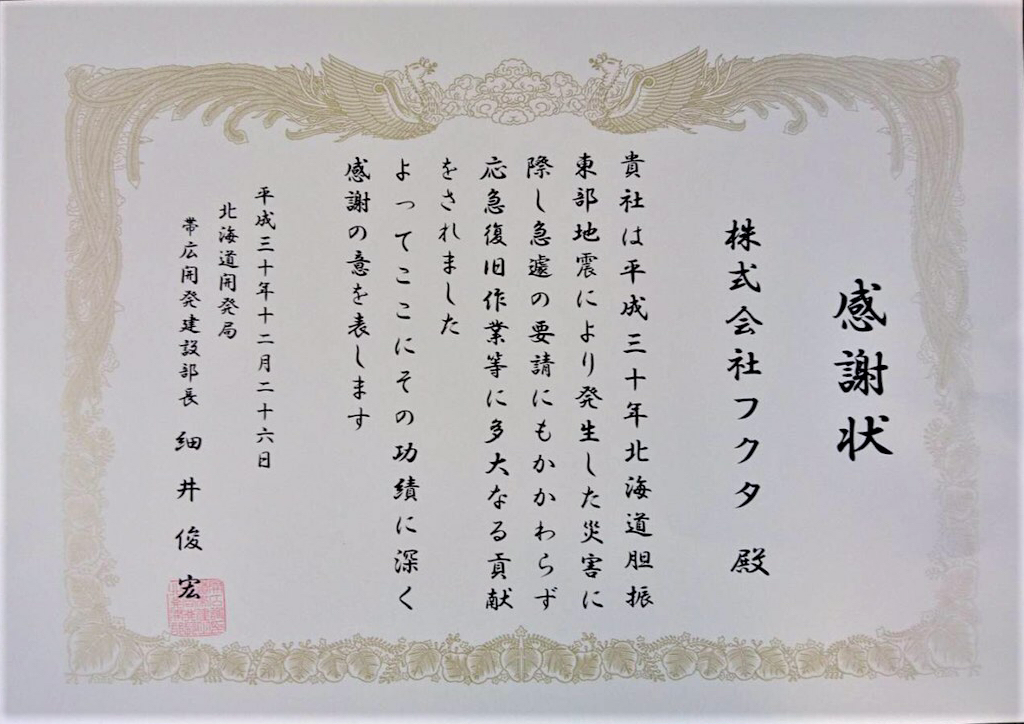 感謝状
株式会社フクタ 殿
貴社は平成三十年北海道胆振
東部地震により発生した災害に
際し急遽の要請にもかかわらず
応急復旧作業等に多大なる貢献
をされました
よってここにその功績に深く
感謝の意を表します
平成三十年十二月二十六日
北海道開発局
帯広開発建設部長 細井俊宏